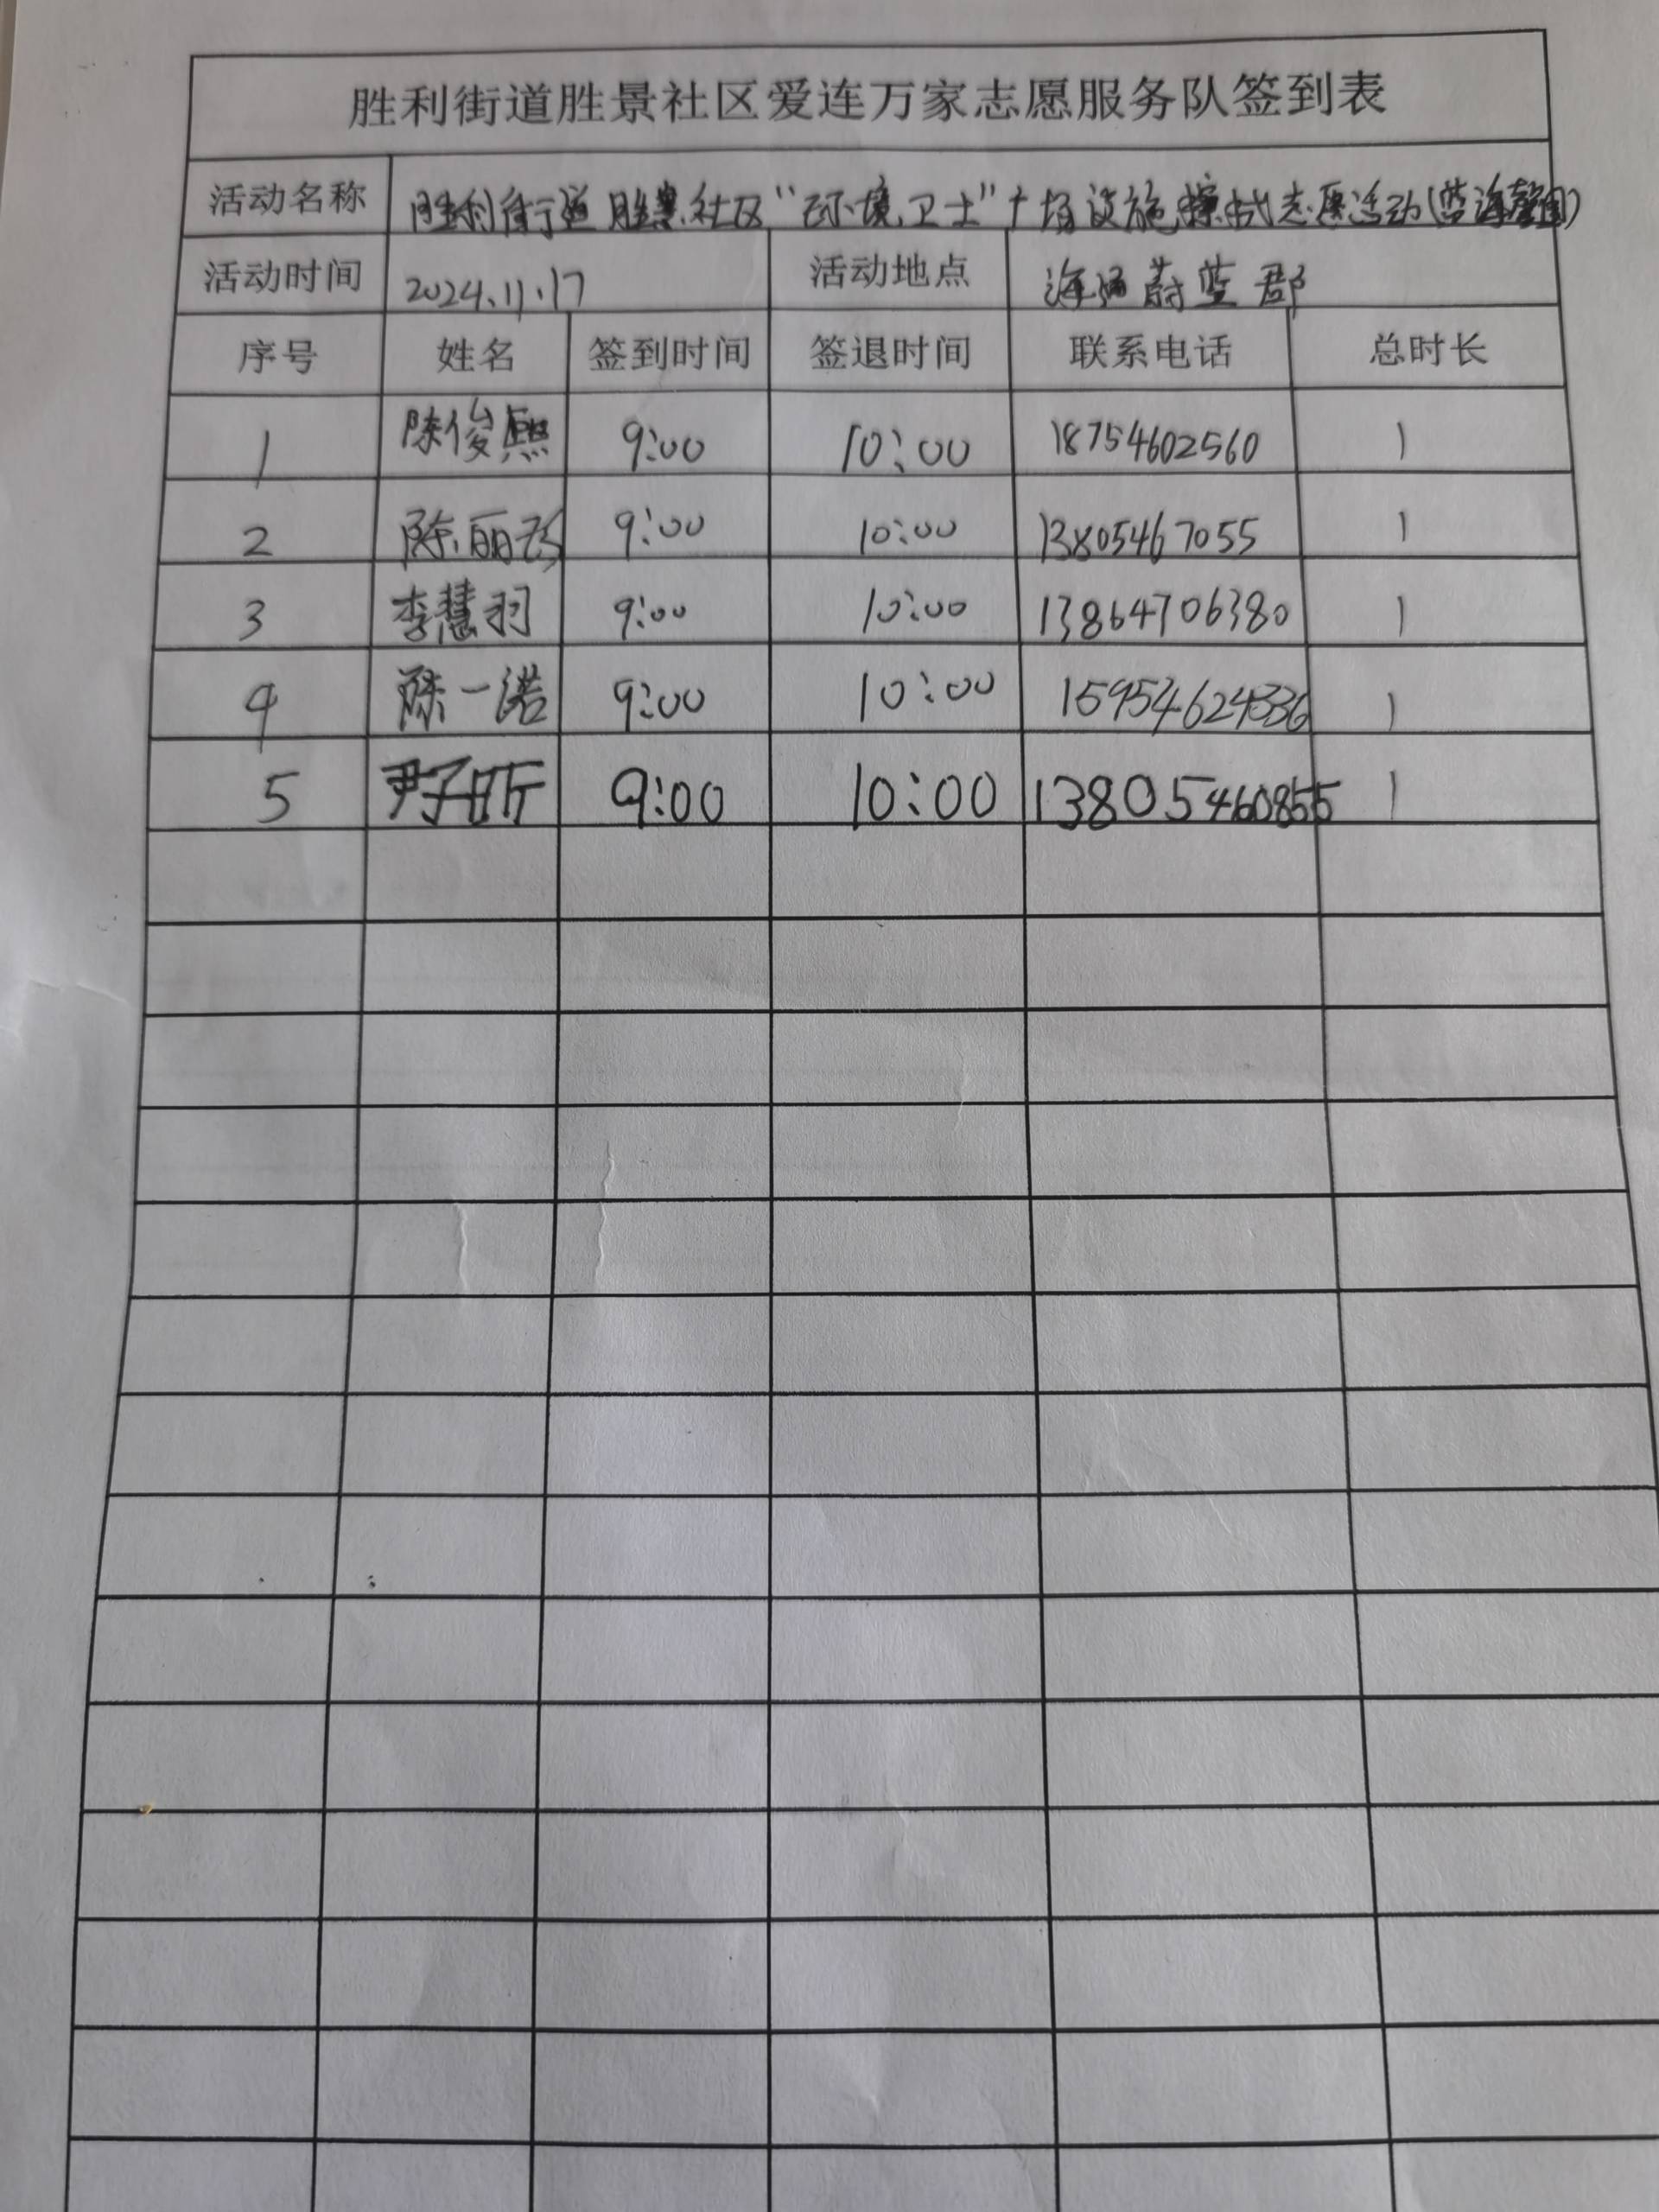 胜利街道胜景社区爱连万家志愿服务队签到表
活动名称 胜利街道胜景社区“环境卫士”广场设施擦拭志愿活动(蓝海馨园)
活动时间 2024.11.17 活动地点 海通蔚蓝郡
序号 姓名 签到时间 签退时间 联系电话 总时长
1 陈俊熙 9:00 10:00 18754602560 1
2 陈丽 9:00 10:00 13805467055 1
3 李慧羽 9:00 10:00 13864706380 1
4 陈一诺 9:00 10:00 15954624336 1
5 尹子昕 9:00 10:00 13805460855 1